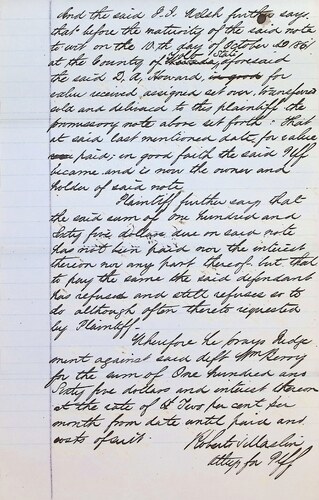 And the said P. I. Welsh further says
that before the maturity of the said note
to wit on the 10.th day of October AD 1861
at the County of Nevada, State aforesaid
the said D, A, Howard, in good for
value received assigned set over, transferred
sold and delivered to this plaintiff the
promissory note above set forth: That
at said last mentioned date for value
paid, in good faith the said Plff
became and is now the owner and
holder of said note
Plaintiff further says that
the said sum of one hundred and
Sixty five dollars due on said note
has not been paid nor the interest
thereon nor any part thereof but that
to pay the same the said defendant
has refused and still refuses so to
do although often thereto requested
by Plaintiff.
Wherefore he prays Judge
ment against said deft Wm Berry
for the sum of One hundred and
Sixty five dollars and interest thereon
at the rate of Two per cent per
month from date until paid and
costs of suit.
Attys for Plff